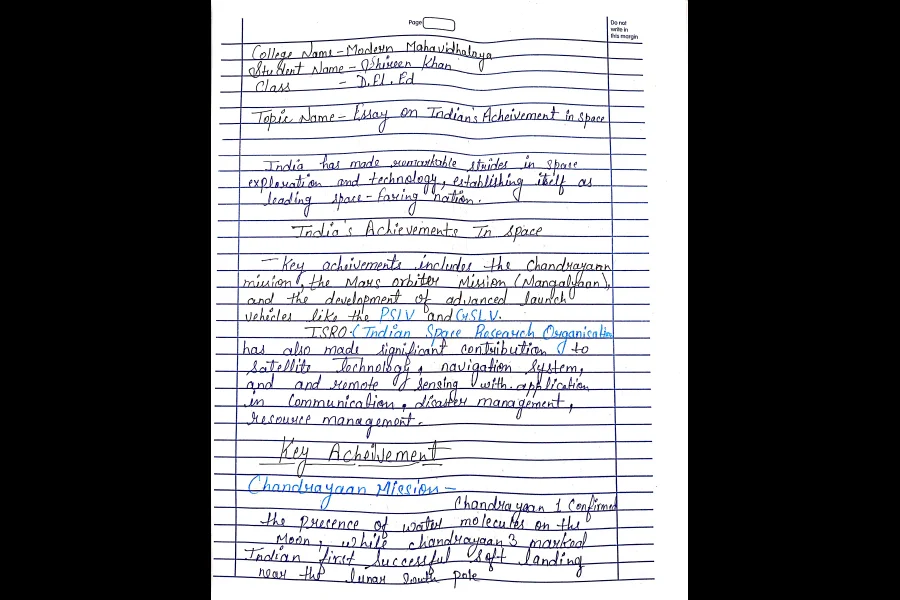 Page
Do not
write in
this margin
College Name - Modern Mahavidhalaya
Student Name - Shireen Khan
Class - D.El.Ed
Topic Name - Essay on Indian's Acheivement in space
India has made remarkable strides in space
exploration and technology, establishing itself as
leading space-faring nation.
India's Achievements In space
- Key acheivements includes the Chandrayann
mission, the Mars orbiter Mission (Mangalyann),
and the development of advanced launch
vehicles like the PSLV and GSLV.
ISRO. (Indian Space Research Organisation
has also made significant contribution to
satellite technology, navigation system,
and and remote sensing with application
in communication, disaster management,
resource management.
Key Acheivement
Chandrayaan Mission -
Chandrayaan 1 Confirmed
the presence of water molecules on the
Moon, while chandrayaan 3 marked
Indian first successful soft landing
near the lunar south pole